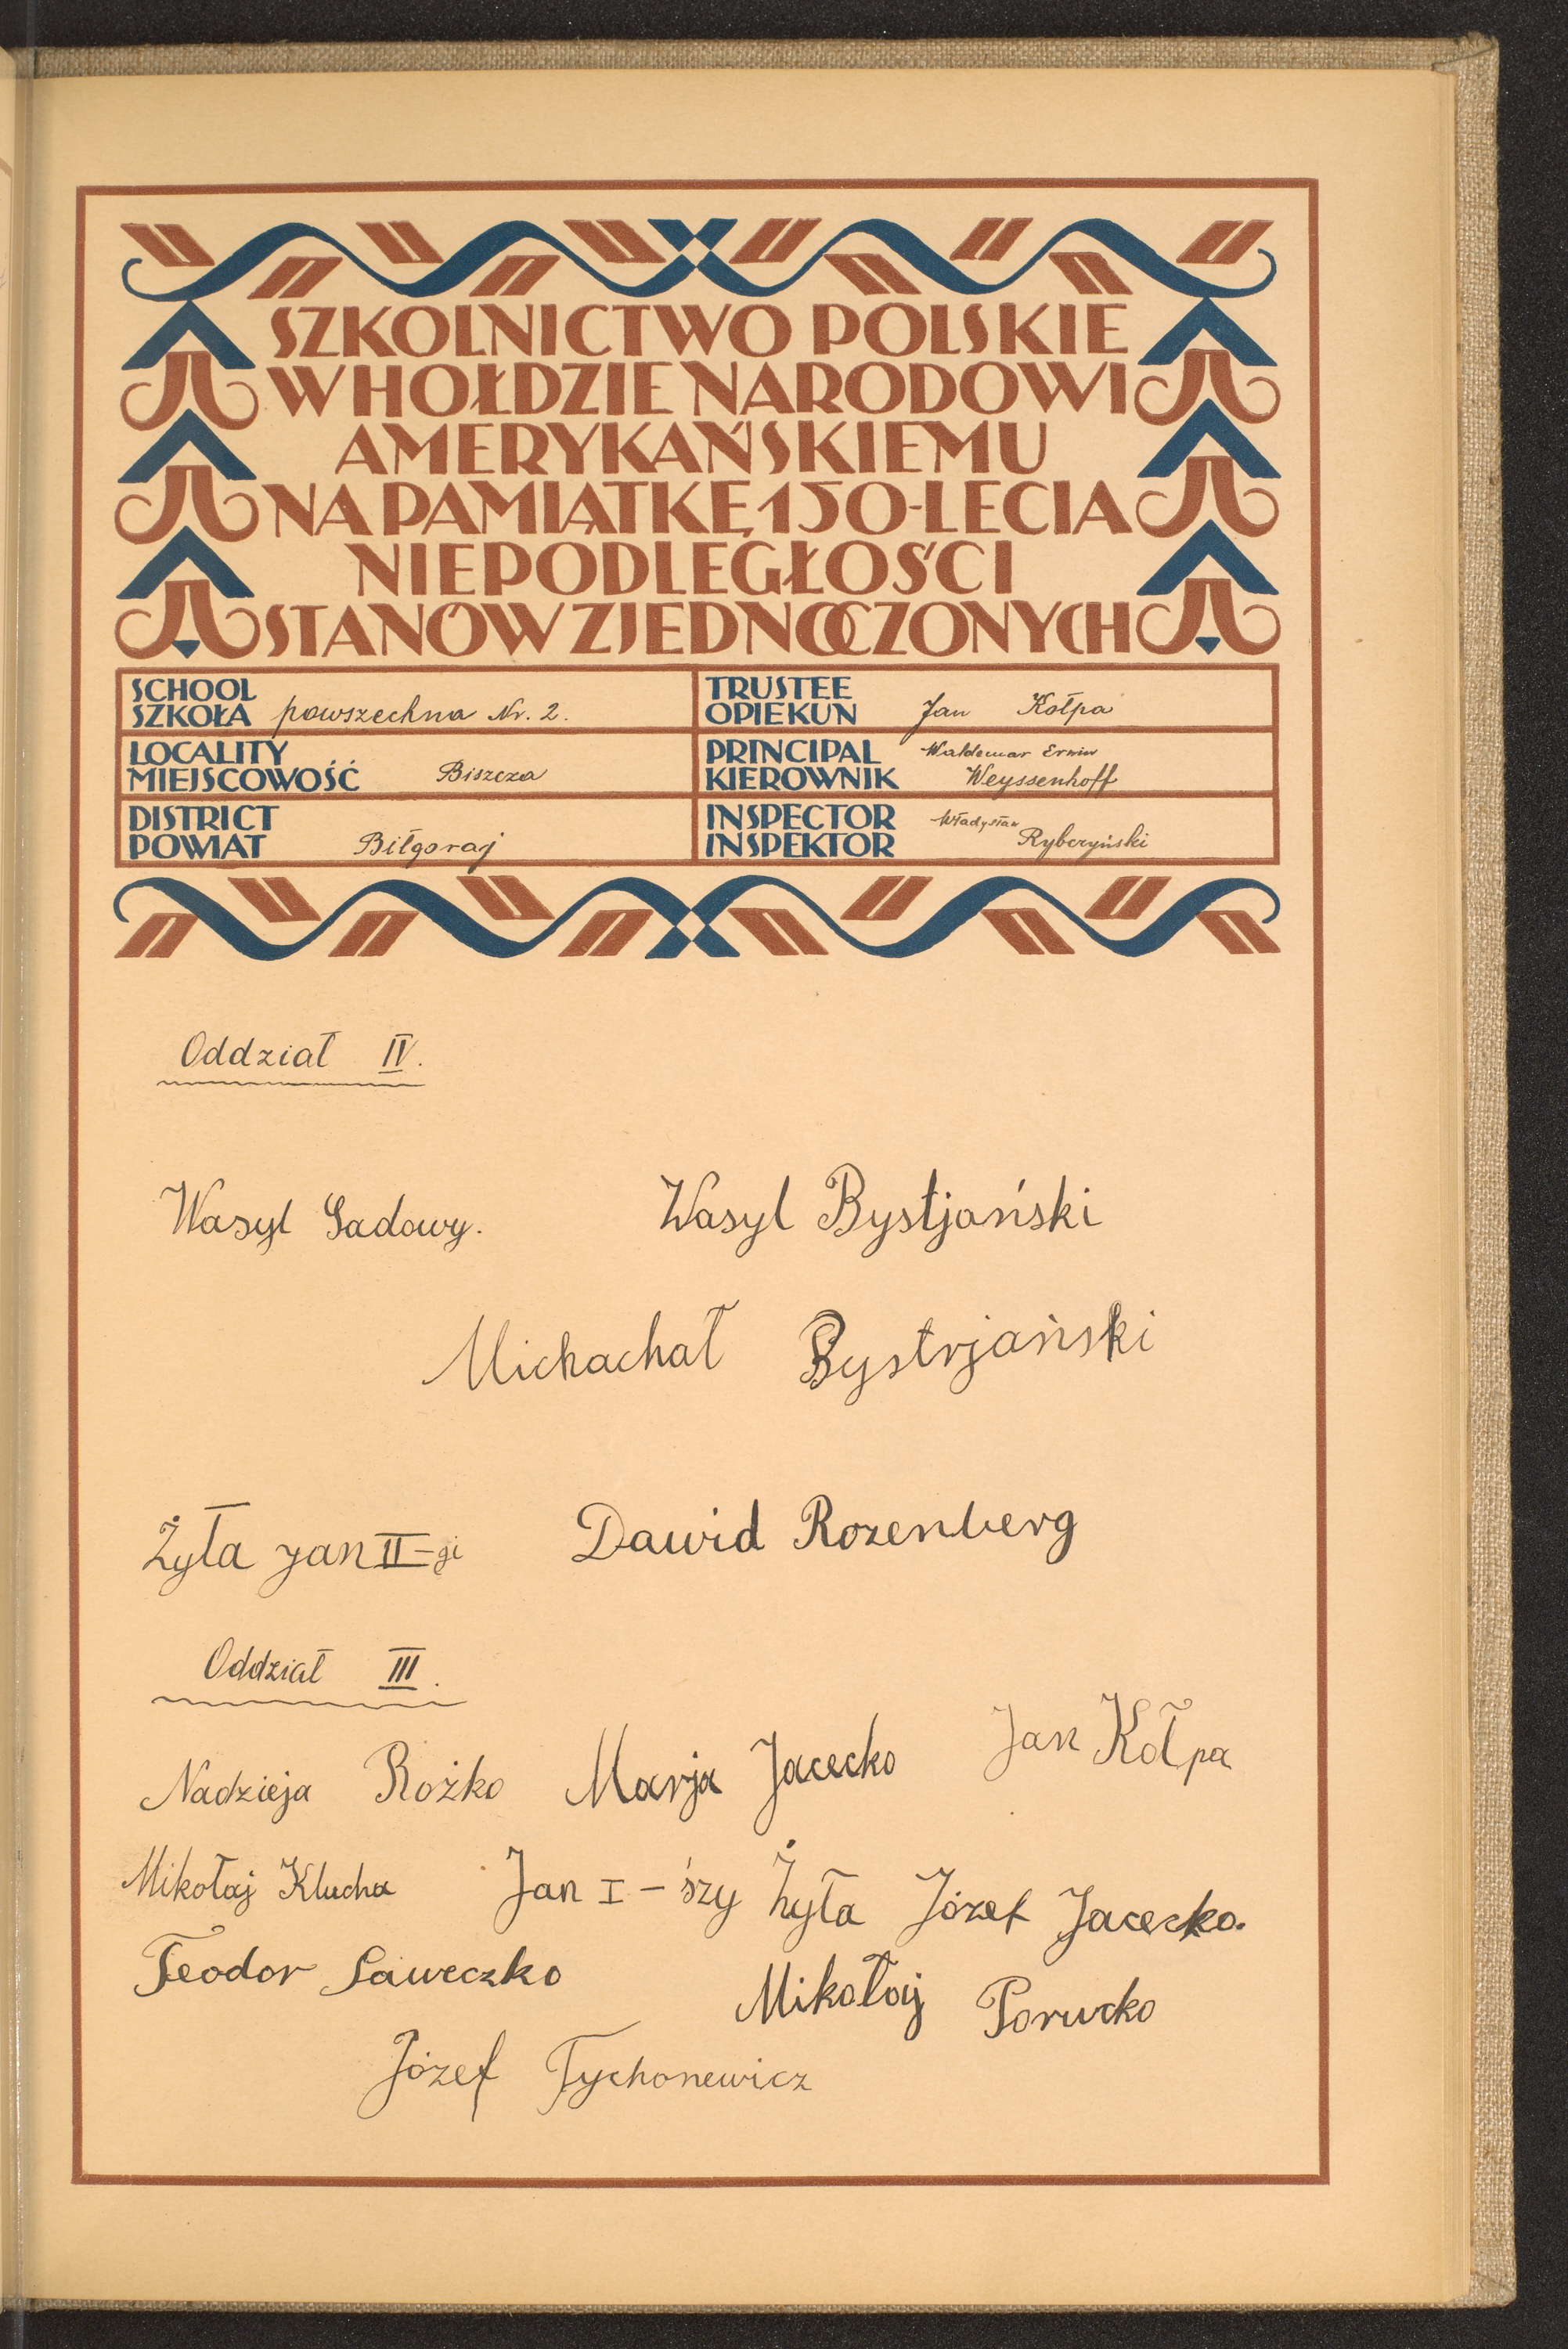 SZKOLNICTWO POLSKIE
W HOŁDZIE NARODOWI
AMERYKAŃSKIEMU
NA PAMIĄTKĘ 150-LECIA
NIEPODLEGŁOŚCI
STANÓW ZJEDNOCZONYCH
SCHOOL
SZKOŁA powszechna Nr. 2.
TRUSTEE
OPIEKUN Jan Kołpa
LOCALITY
MIEJSCOWOŚĆ Biszcza
PRINCIPAL Waldemar Erwin
KIEROWNIK Weyssenhoff
DISTRICT
POWIAT Biłgoraj
INSPECTOR Władysław
INSPEKTOR Rybczyński
Oddział IV.
Wasyl Sadowy. Wasyl Bystjański
Michachał Bystrjański
Żyła Jan II-gi Dawid Rozenberg
Oddział III.
Nadzieja Rożko Marja Jacecko Jan Kołpa
Mikołaj Klucha Jan I-szy Żyła Józef Jacecko.
Teodor Saweczko Mikołaj Porucko
Józef Tychonewicz